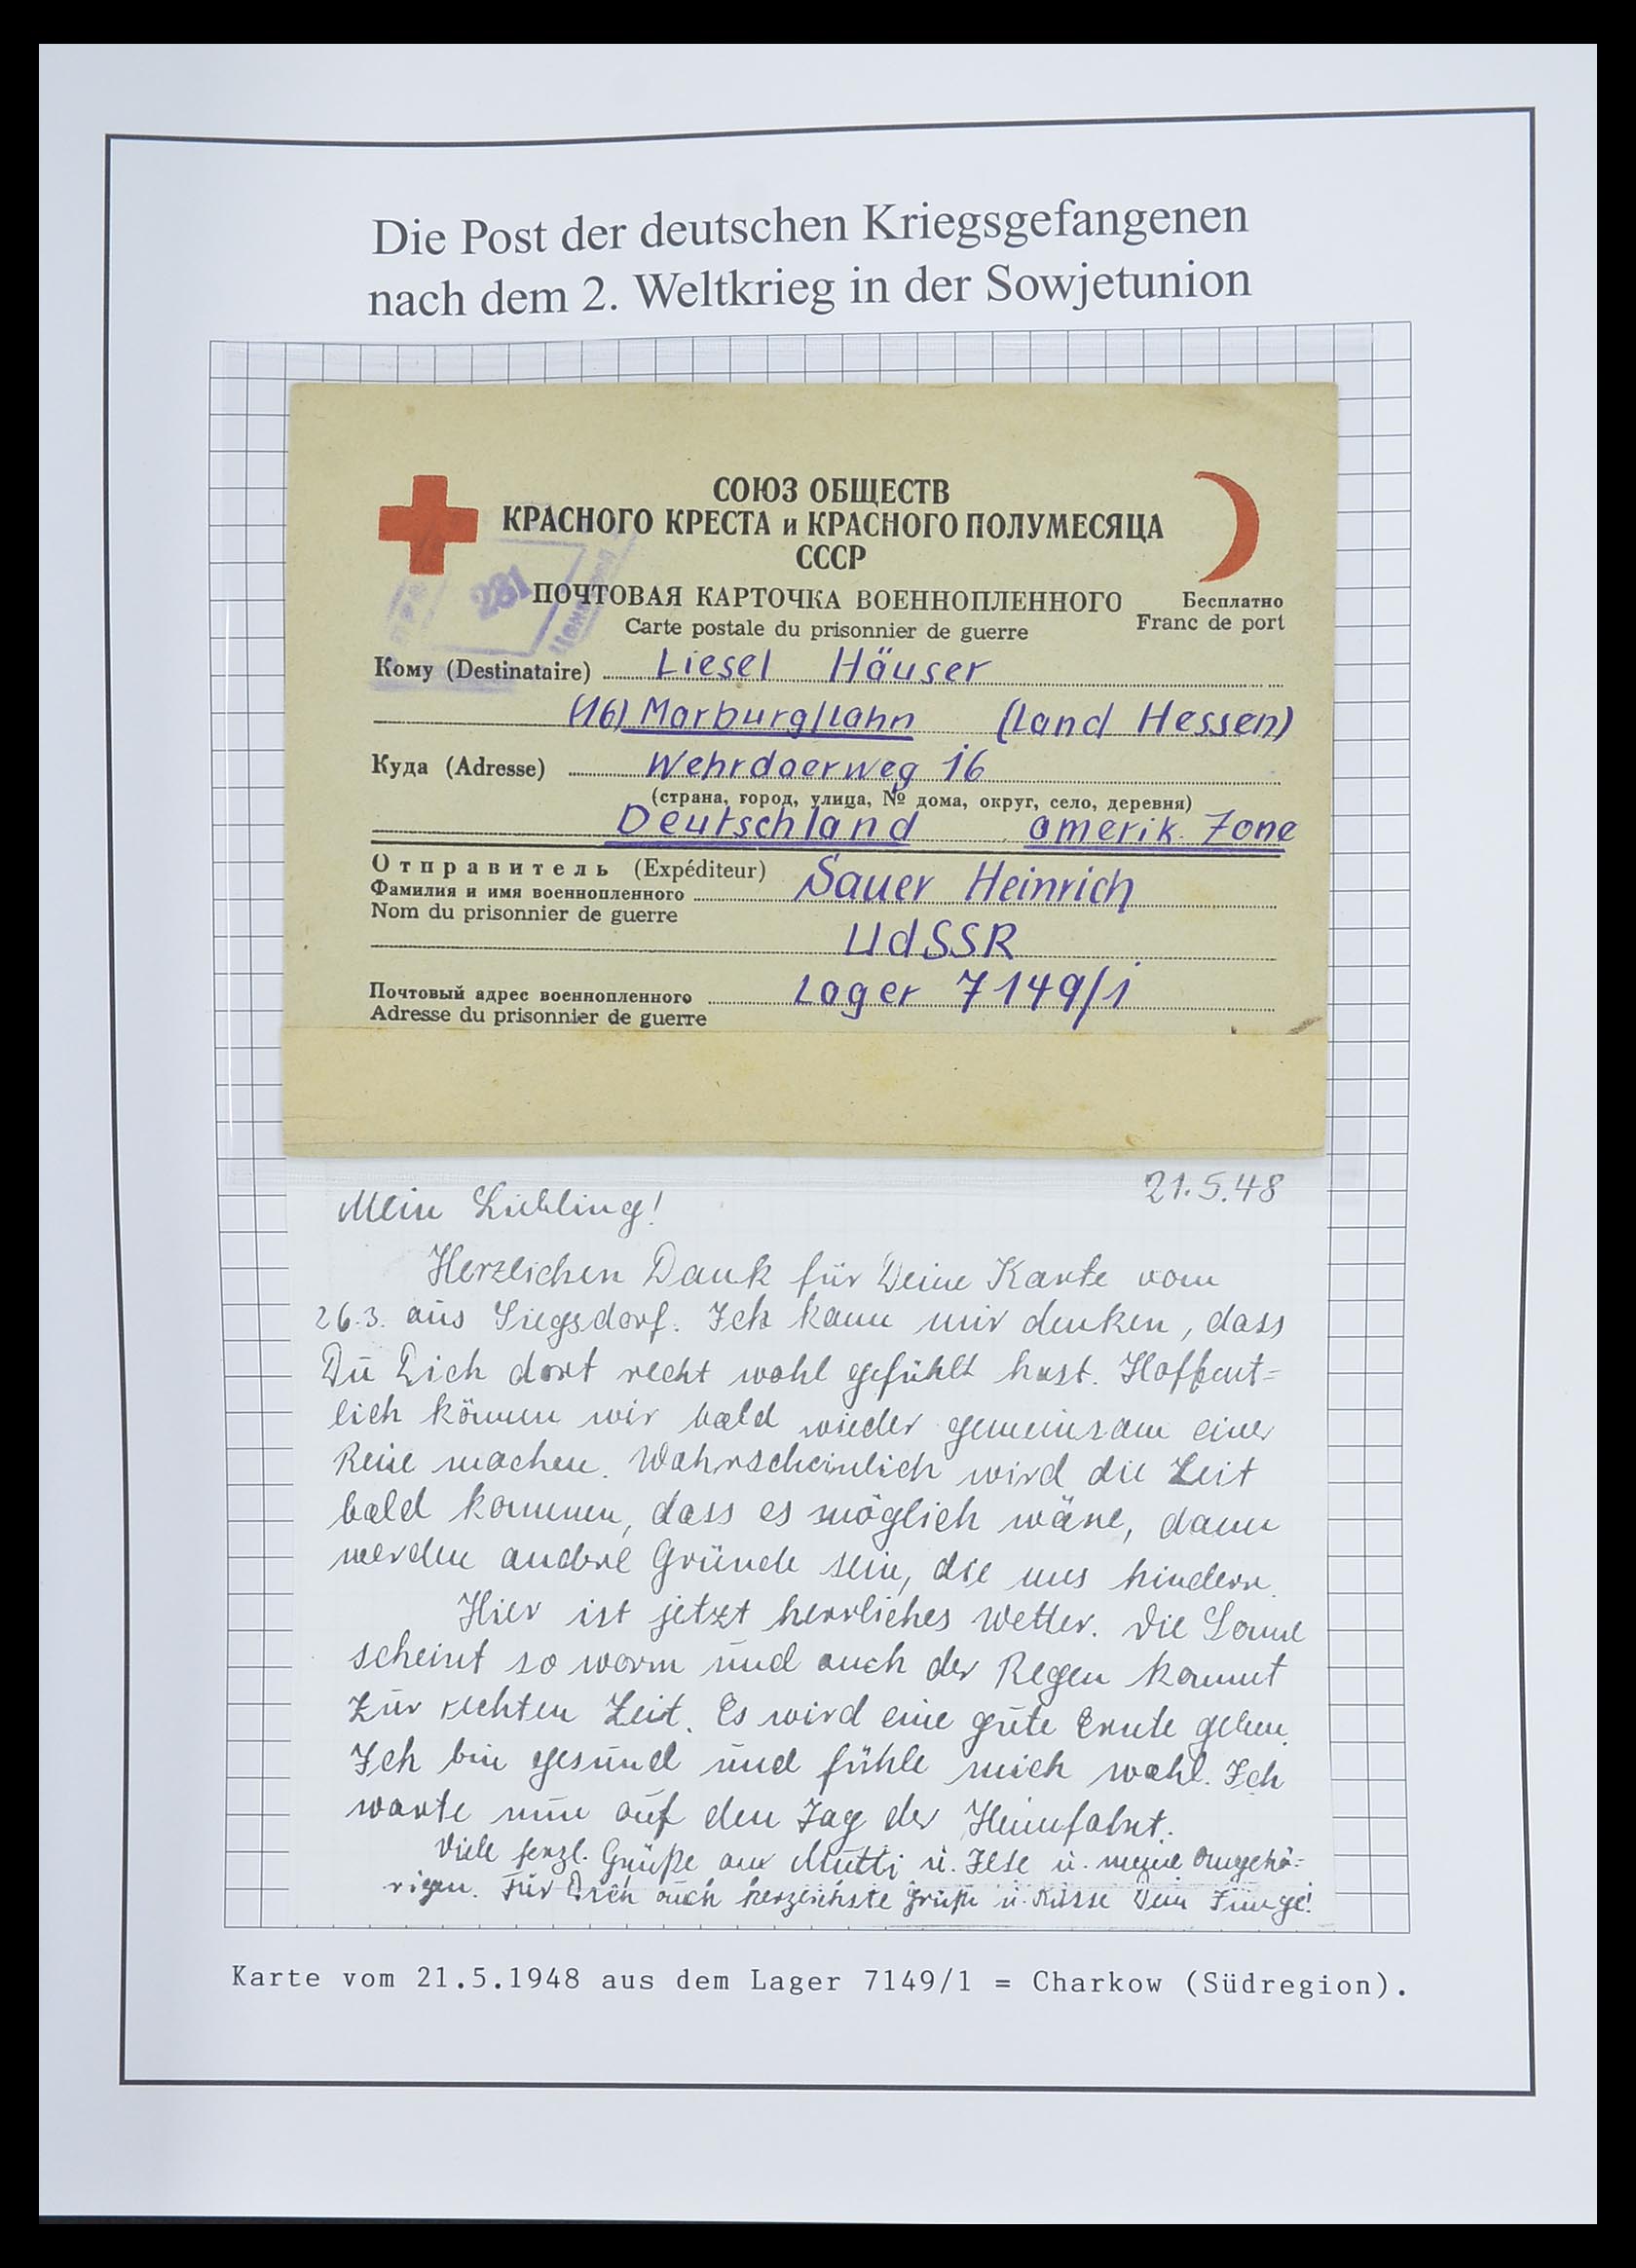 Die Post der deutschen Kriegsgefangenen
nach dem 2. Weltkrieg in der Sowjetunion
СОЮЗ ОБЩЕСТВ
КРАСНОГО КРЕСТА и КРАСНОГО ПОЛУМЕСЯЦА
СССР
281
ПОЧТОВАЯ КАРТОЧКА ВОЕННОПЛЕННОГО
Carte postale du prisonnier de guerre
Бесплатно
Franc de port
Кому (Destinataire) Liesel Häuser
(16) Marburg/Lahn (Land Hessen)
Куда (Adresse) Wehrdaerweg 16
(страна, город, улица, № дома, округ, село, деревня)
Deutschland amerik. Zone
Отправитель (Expéditeur)
Фамилия и имя военнопленного Sauer Heinrich
Nom du prisonnier de guerre
UdSSR
Почтовый адрес военнопленного Lager 7149/1
Adresse du prisonnier de guerre
21.5.48
Mein Liebling!
Herzlichen Dank für Deine Karte vom
26.3. aus Siegsdorf. Ich kann mir denken, dass
Du Dich dort recht wohl gefühlt hast. Hoffent=
lich können wir bald wieder gemeinsam eine
Reise machen. Wahrscheinlich wird die Zeit
bald kommen, dass es möglich wäre, dann
werden andere Gründe sein, die uns hindern.
Hier ist jetzt herrliches Wetter. Die Sonne
scheint so warm und auch der Regen kommt
zur rechten Zeit. Es wird eine gute Ernte geben.
Ich bin gesund und fühle mich wohl. Ich
warte nun auf den Tag der Heimfahrt.
Viele herzl. Grüße an Mutti u. Ilse u. meine Angehö=
rigen. Für Dich auch herzlichste Grüße u. Küsse Dein Junge!
Karte vom 21.5.1948 aus dem Lager 7149/1 = Charkow (Südregion).